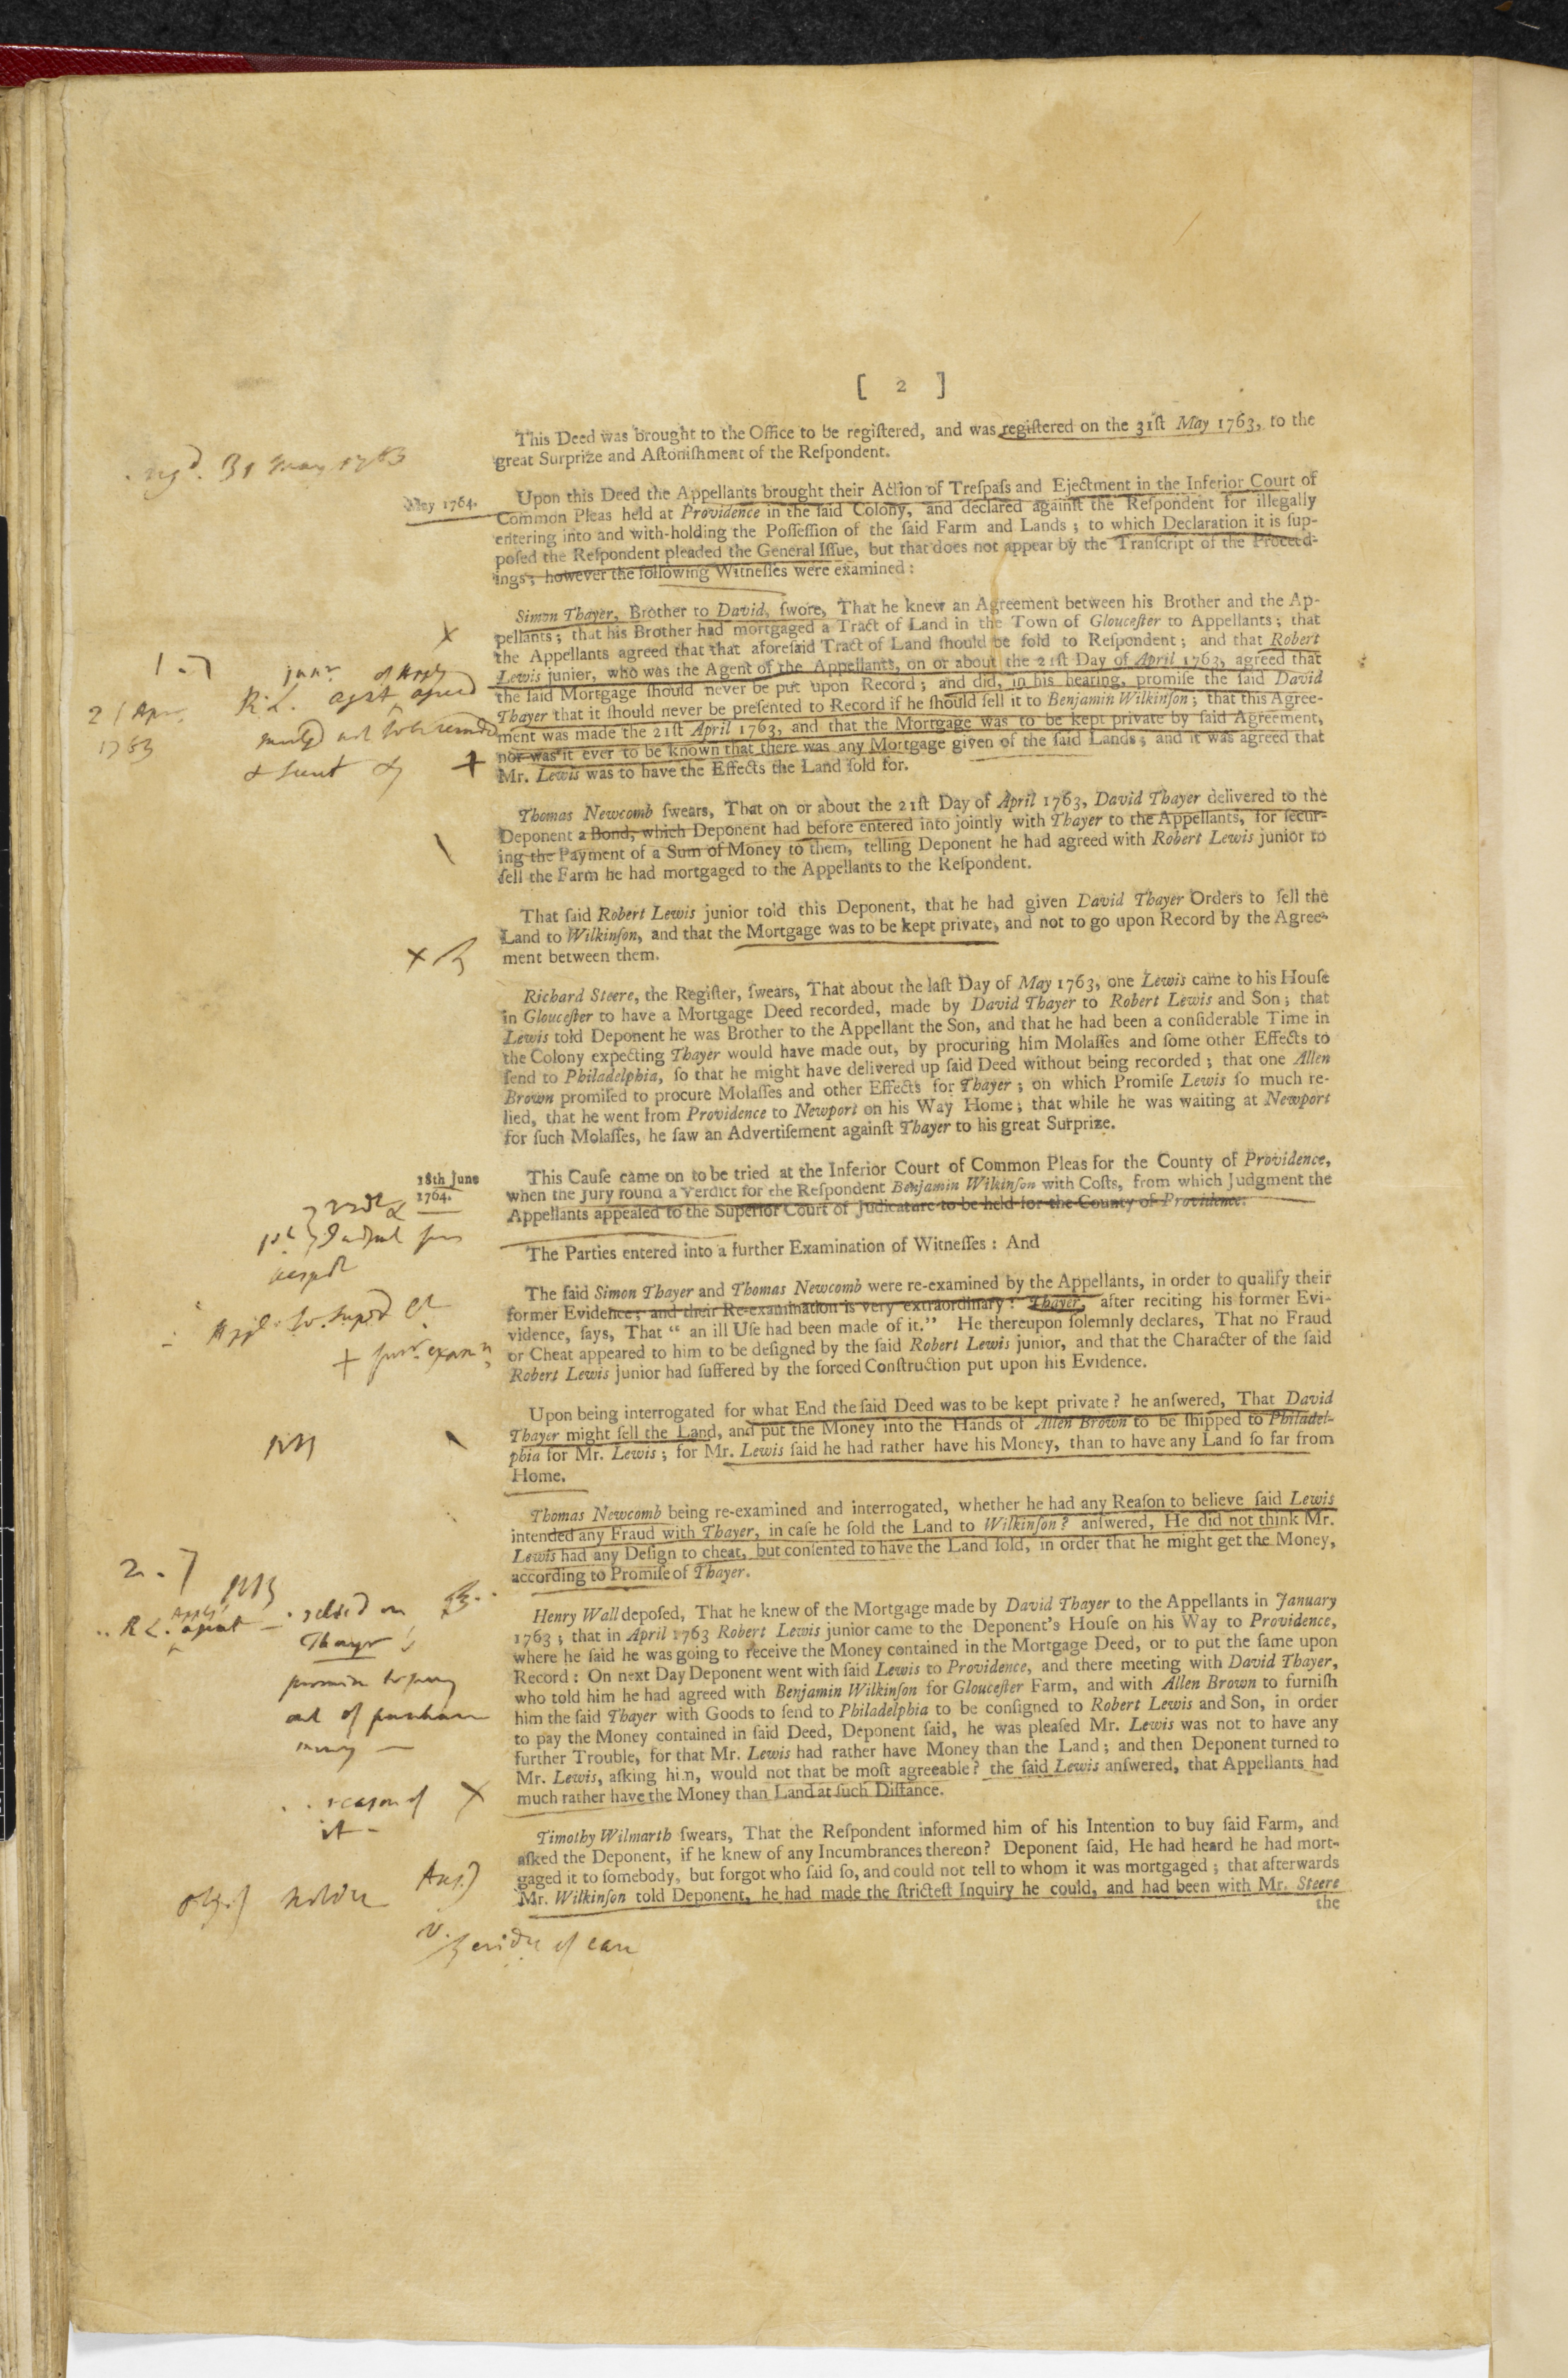 [ 2 ]
This Deed was brought to the Office to be regiſtered, and was regiſtered on the 31ſt May 1763, to the
great Surprize and Aſtoniſhment of the Reſpondent.
regd. 31 May 1763
May 1764.
Upon this Deed the Appellants brought their Action of Treſpaſs and Ejectment in the Inferior Court of
Common Pleas held at Providence in the ſaid Colony, and declared againſt the Reſpondent for illegally
entering into and with-holding the Poſſeſſion of the ſaid Farm and Lands; to which Declaration it is ſup-
poſed the Reſpondent pleaded the General Iſſue, but that does not appear by the Tranſcript of the Proceed-
ings; however the following Witneſſes were examined:
Simon Thayer, Brother to David, ſwore, That he knew an Agreement between his Brother and the Ap-
pellants; that his Brother had mortgaged a Tract of Land in the Town of Glouceſter to Appellants; that
the Appellants agreed that that aforeſaid Tract of Land ſhould be ſold to Reſpondent; and that Robert
Lewis junior, who was the Agent of the Appellants, on or about the 21ſt Day of April 1763, agreed that
the ſaid Mortgage ſhould never be put upon Record; and did, in his hearing, promiſe the ſaid David
Thayer that it ſhould never be preſented to Record if he ſhould ſell it to Benjamin Wilkinſon; that this Agree-
ment was made the 21ſt April 1763, and that the Mortgage was to be kept private by ſaid Agreement,
nor was it ever to be known that there was any Mortgage given of the ſaid Lands; and it was agreed that
Mr. Lewis was to have the Effects the Land ſold for.
X
1.
junr. of Apps
R. L. agt agreed
21 Apr.
1763
+
Thomas Newcomb ſwears, That on or about the 21ſt Day of April 1763, David Thayer delivered to the
Deponent a Bond, which Deponent had before entered into jointly with Thayer to the Appellants, for ſecur-
ing the Payment of a Sum of Money to them, telling Deponent he had agreed with Robert Lewis junior to
ſell the Farm he had mortgaged to the Appellants to the Reſpondent.
That ſaid Robert Lewis junior told this Deponent, that he had given David Thayer Orders to ſell the
Land to Wilkinſon, and that the Mortgage was to be kept private, and not to go upon Record by the Agree-
ment between them.
X
Richard Steere, the Regiſter, ſwears, That about the laſt Day of May 1763, one Lewis came to his Houſe
in Glouceſter to have a Mortgage Deed recorded, made by David Thayer to Robert Lewis and Son; that
Lewis told Deponent he was Brother to the Appellant the Son, and that he had been a conſiderable Time in
the Colony expecting Thayer would have made out, by procuring him Molaſſes and ſome other Effects to
ſend to Philadelphia, ſo that he might have delivered up ſaid Deed without being recorded; that one Allen
Brown promiſed to procure Molaſſes and other Effects for Thayer; on which Promiſe Lewis ſo much re-
lied, that he went from Providence to Newport on his Way Home; that while he was waiting at Newport
for ſuch Molaſſes, he ſaw an Advertiſement againſt Thayer to his great Surprize.
18th June
1764.
This Cauſe came on to be tried at the Inferior Court of Common Pleas for the County of Providence,
when the Jury found a Verdict for the Reſpondent Benjamin Wilkinſon with Coſts, from which Judgment the
Appellants appealed to the Superior Court of Judicature to be held for the County of Providence.
The Parties entered into a further Examination of Witneſſes: And
The ſaid Simon Thayer and Thomas Newcomb were re-examined by the Appellants, in order to qualify their
former Evidence; and their Re-examination is very extraordinary! Thayer, after reciting his former Evi-
vidence, ſays, That “ an ill Uſe had been made of it.” He thereupon ſolemnly declares, That no Fraud
or Cheat appeared to him to be deſigned by the ſaid Robert Lewis junior, and that the Character of the ſaid
Robert Lewis junior had ſuffered by the forced Conſtruction put upon his Evidence.
Upon being interrogated for what End the ſaid Deed was to be kept private? he anſwered, That David
Thayer might ſell the Land, and put the Money into the Hands of Allen Brown to be ſhipped to Philadel-
phia for Mr. Lewis; for Mr. Lewis ſaid he had rather have his Money, than to have any Land ſo far from
Home.
Thomas Newcomb being re-examined and interrogated, whether he had any Reaſon to believe ſaid Lewis
intended any Fraud with Thayer, in caſe he ſold the Land to Wilkinſon? anſwered, He did not think Mr.
Lewis had any Deſign to cheat, but conſented to have the Land ſold, in order that he might get the Money,
according to Promiſe of Thayer.
2.
Henry Wall depoſed, That he knew of the Mortgage made by David Thayer to the Appellants in January
1763; that in April 1763 Robert Lewis junior came to the Deponent's Houſe on his Way to Providence,
where he ſaid he was going to receive the Money contained in the Mortgage Deed, or to put the ſame upon
Record: On next Day Deponent went with ſaid Lewis to Providence, and there meeting with David Thayer,
who told him he had agreed with Benjamin Wilkinſon for Glouceſter Farm, and with Allen Brown to furniſh
him the ſaid Thayer with Goods to ſend to Philadelphia to be conſigned to Robert Lewis and Son, in order
to pay the Money contained in ſaid Deed, Deponent ſaid, he was pleaſed Mr. Lewis was not to have any
further Trouble, for that Mr. Lewis had rather have Money than the Land; and then Deponent turned to
Mr. Lewis, aſking him, would not that be moſt agreeable? the ſaid Lewis anſwered, that Appellants had
much rather have the Money than Land at ſuch Diſtance.
R L. agent - relied on
Thayr's
promise to pay
out of purchase
money —
reason of
it -
X
Timothy Wilmarth ſwears, That the Reſpondent informed him of his Intention to buy ſaid Farm, and
aſked the Deponent, if he knew of any Incumbrances thereon? Deponent ſaid, He had heard he had mort-
gaged it to ſomebody, but forgot who ſaid ſo, and could not tell to whom it was mortgaged; that afterwards
Mr. Wilkinſon told Deponent, he had made the ſtricteſt Inquiry he could, and had been with Mr. Steere
the